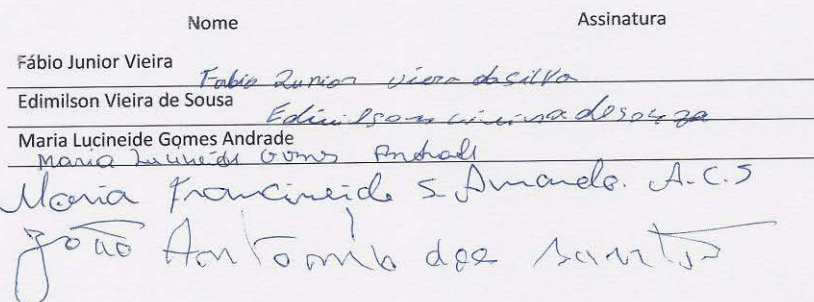 Nome Assinatura
Fábio Junior Vieira
Fabio Junior vieira da silva
Edimilson Vieira de Sousa
Edimilson vieira de souza
Maria Lucineide Gomes Andrade
Maria Lucineide Gomes Andrade
Maria Francineide S. Amando. A.C.S
João Antonio dos santos